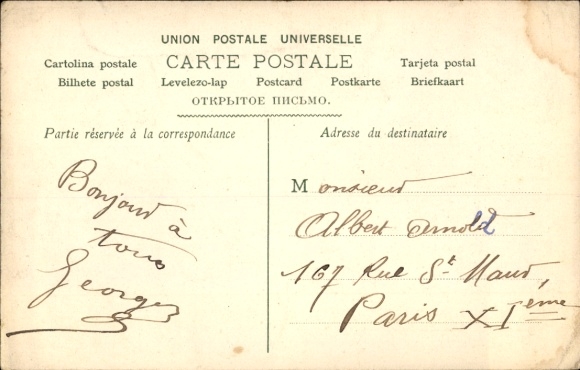 UNION POSTALE UNIVERSELLE
CARTE POSTALE
Cartolina postale
Tarjeta postal
Bilhete postal Levelezo-lap Postcard Postkarte Briefkaart
ОТКРЫТОЕ ПИСЬМО.
Partie réservée à la correspondance
Adresse du destinataire
Bonjour à
tous
Georges
Monsieur
Albert Arnold
167 Rue St Maur,
Paris XIème